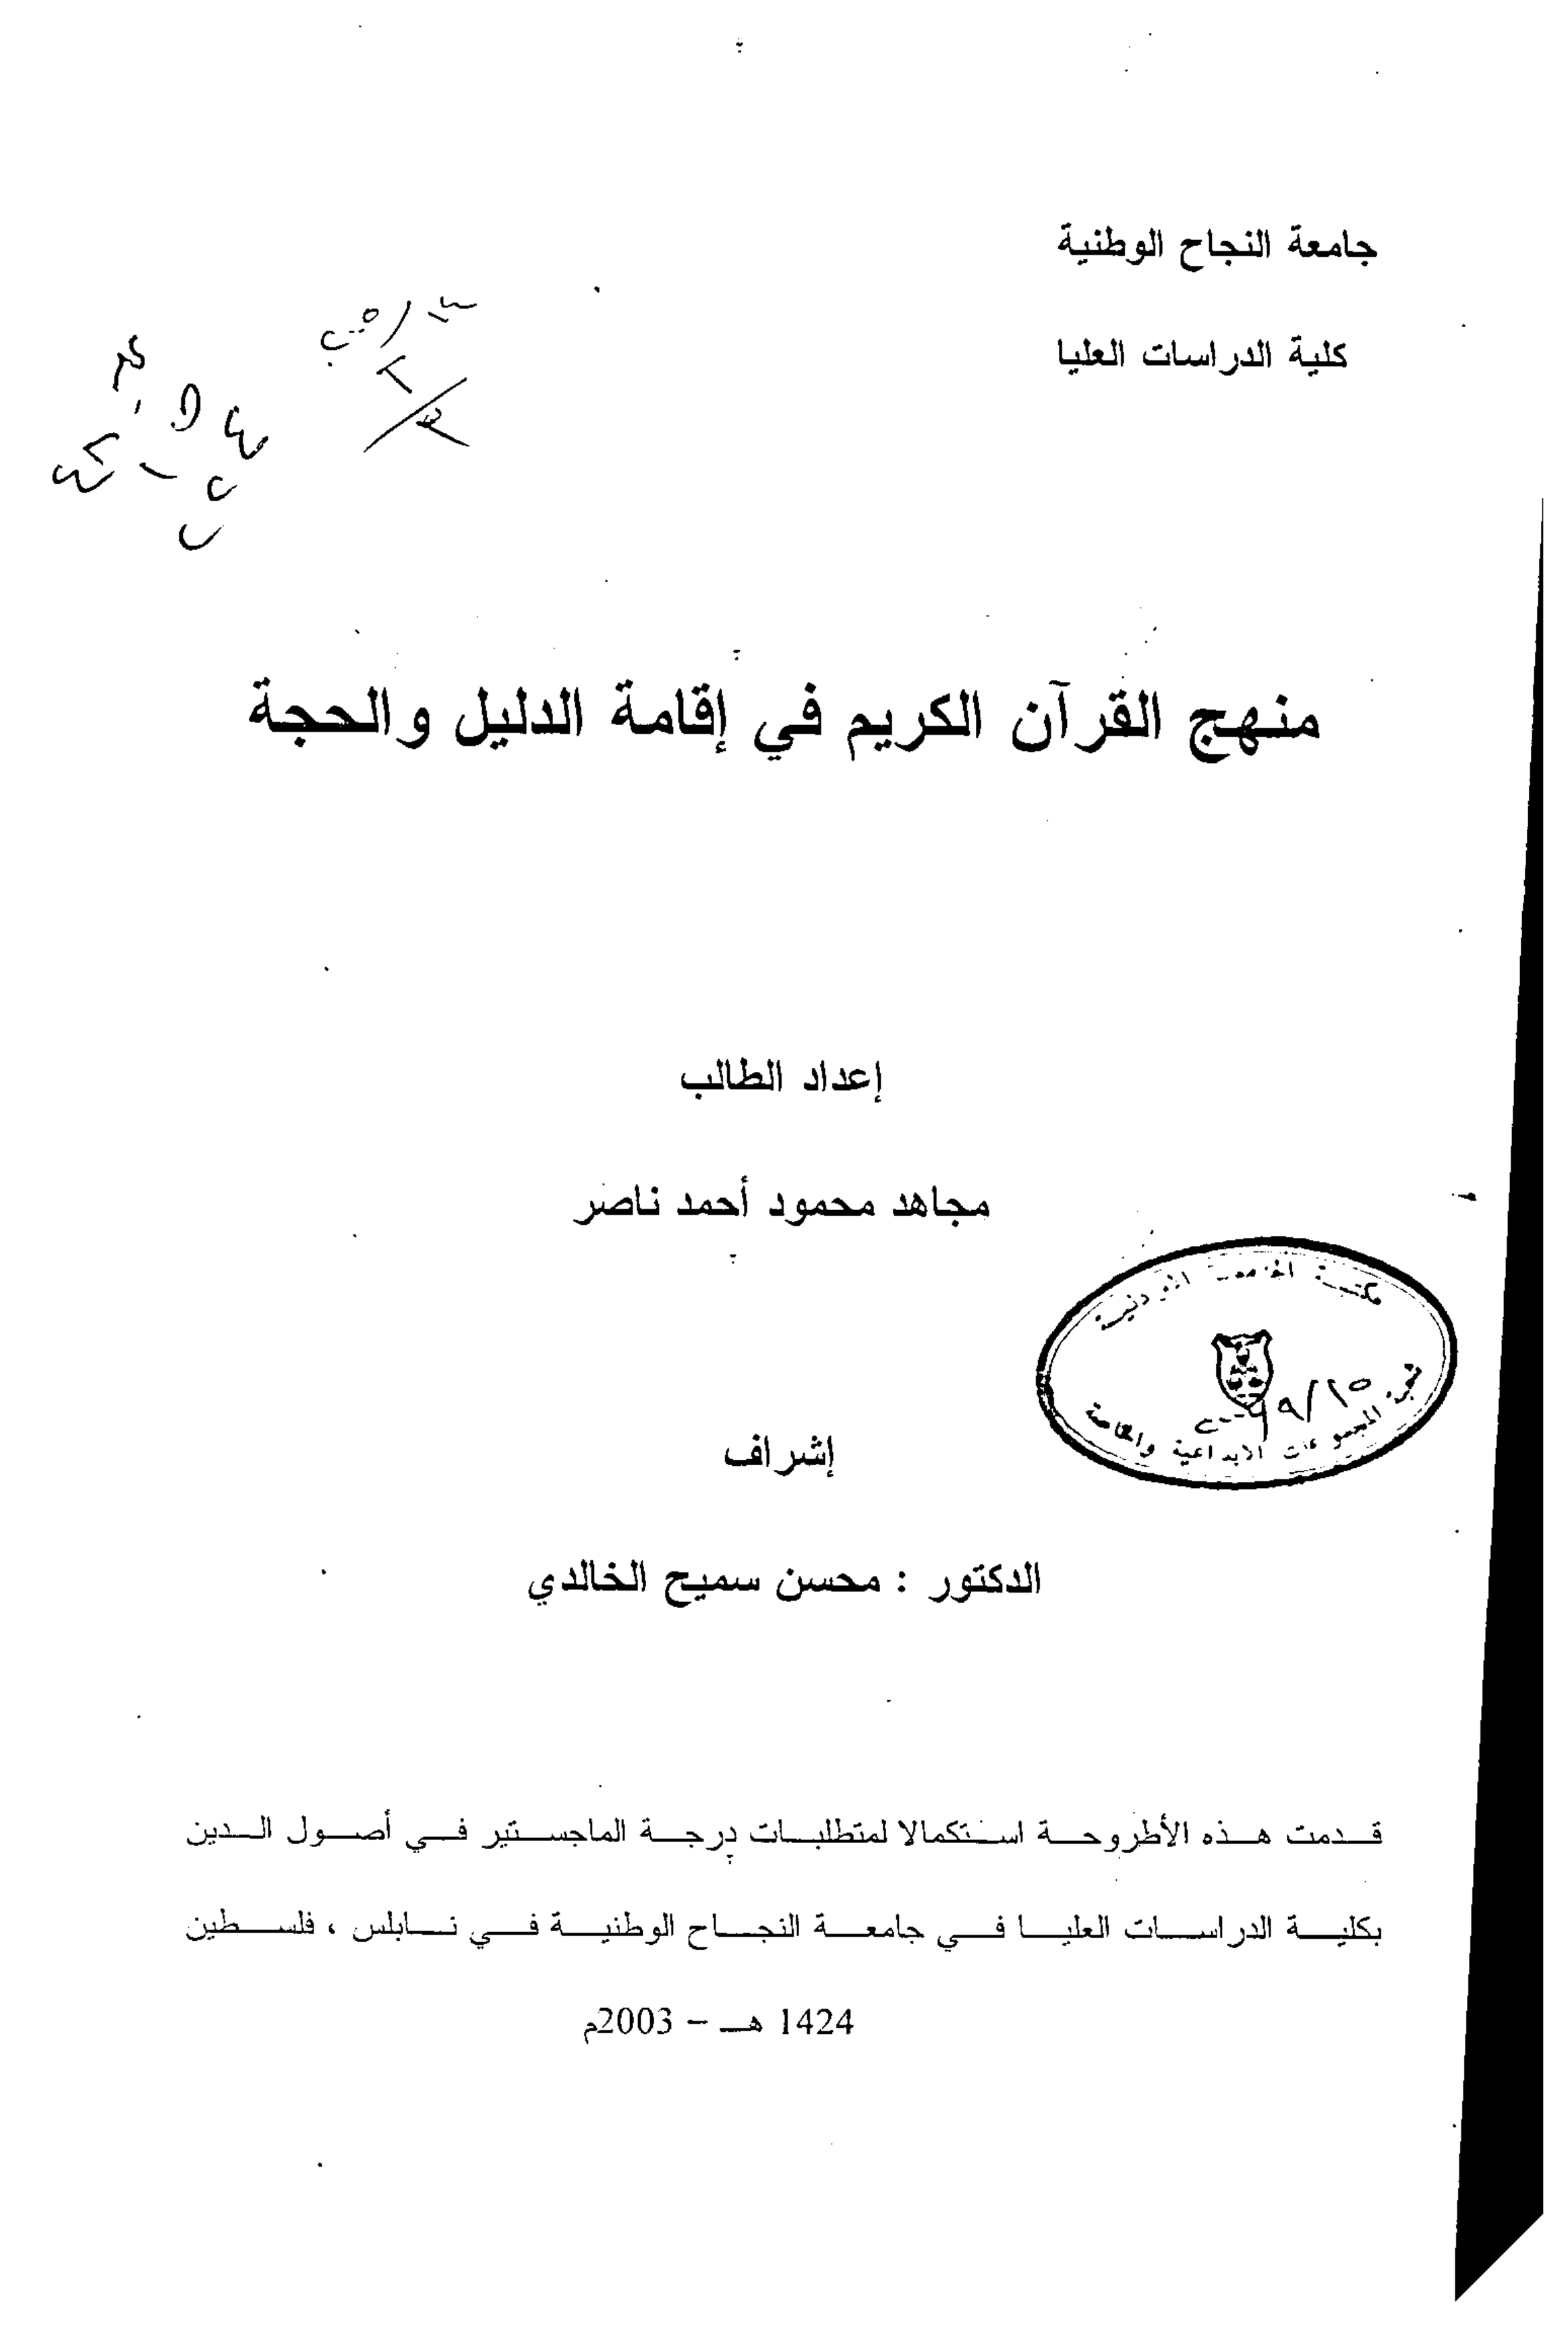 جامعة النجاح الوطنية
كلية الدراسات العليا
منهج القرآن الكريم في إقامة الدليل والحجة
إعداد الطالب
مجاهد محمود أحمد ناصر
مكتبة الجامعة الاردنية
المجموعات الابداعية والخاصة
إشراف
الدكتور : محسن سميح الخالدي
قدمت هذه الأطروحة استكمالا لمتطلبات درجة الماجستير في أصول الدين
بكلية الدراسات العليا في جامعة النجاح الوطنية في نابلس ، فلسطين
1424 هـ - 2003م